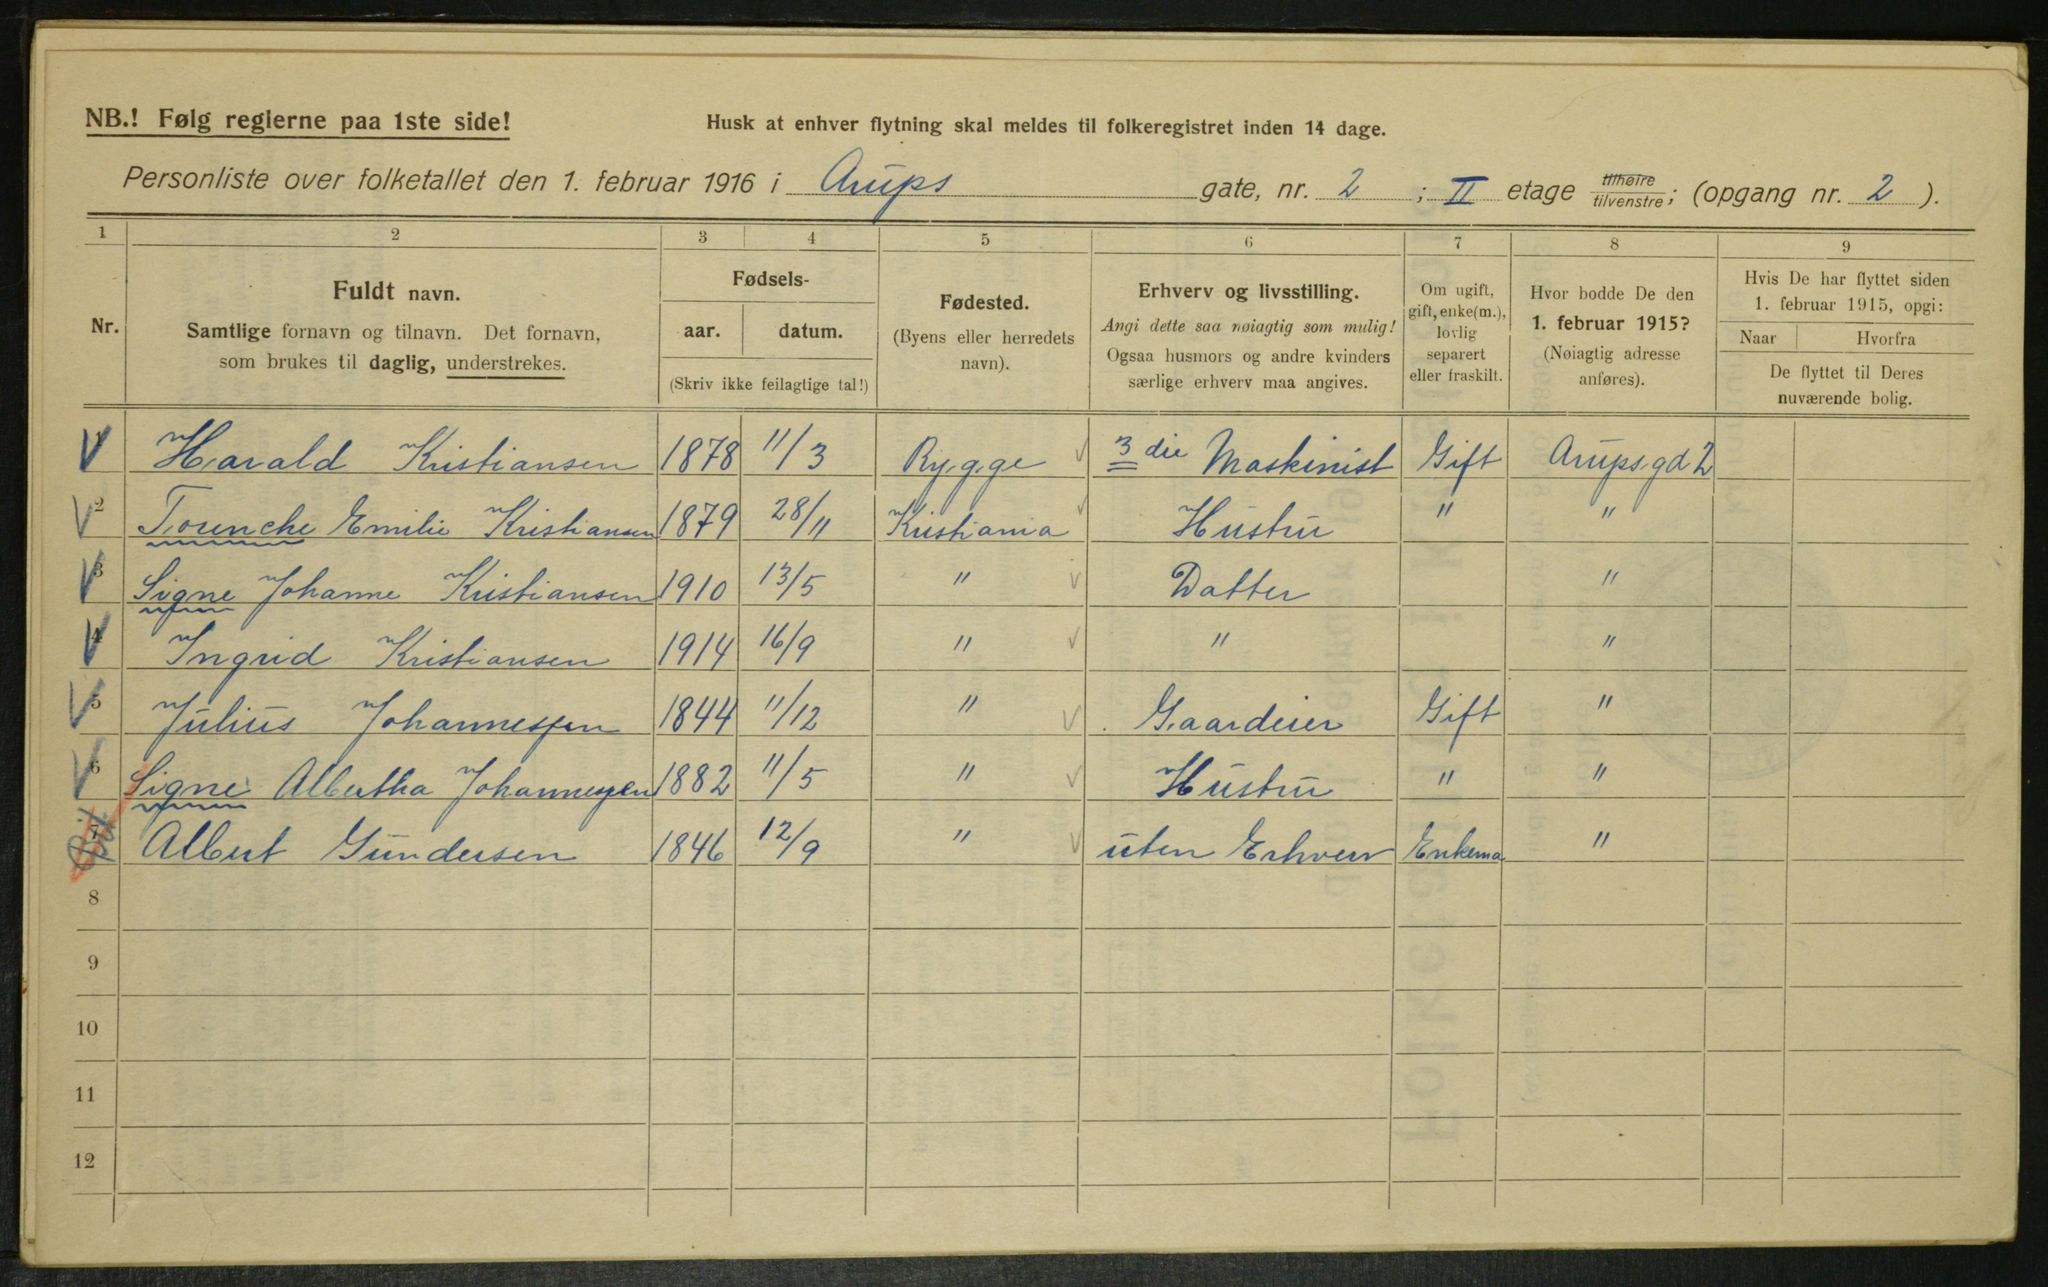 NB.! Følg reglerne paa 1ste side!
Husk at enhver flytning skal meldes til folkeregistret inden 14 dage.
Personliste over folketallet den 1. februar 1916 i Arups gate, nr. 2 ; II etage tilhøire tilvenstre; (opgang nr. 2 ).
1 2 3 4 5 6 7 8 9
Nr.
Fuldt navn.
Samtlige fornavn og tilnavn. Det fornavn,
som brukes til daglig, understrekes.
Fødsels-
aar. datum.
(Skriv ikke feilagtige tal!)
Fødested.
(Byens eller herredets
navn).
Erhverv og livsstilling.
Angi dette saa nøiagtig som mulig!
Ogsaa husmors og andre kvinders
særlige erhverv maa angives.
Om ugift,
gift, enke(m.),
lovlig
separert
eller fraskilt.
Hvor bodde De den
1. februar 1915?
(Nøiagtig adresse
anføres).
Hvis De har flyttet siden
1. februar 1915, opgi:
Naar Hvorfra
De flyttet til Deres
nuværende bolig.
1 Harald Kristiansen 1878 11/3 Rygge 3die Maskinist Gift Arupsgd 2
2 Emilie Kristiansen 1879 28/11 Kristiania Hustru " "
3 Signe Johanne Kristiansen 1910 13/5 " Datter "
4 Ingrid Kristiansen 1914 16/9 " " "
5 Julius Johannessen 1844 11/12 " Gaardeier Gift "
6 Signe Albertha Johannessen 1882 11/5 " Hustru " "
7 Albert Gundersen 1846 12/9 " uten Erhverv Enkema "
8
9
10
11
12